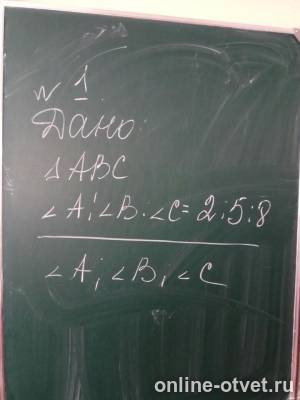 № 1
Дано:
△ABC
∠A:∠B:∠C=2:5:8
∠A; ∠B; ∠C
online-otvet.ru